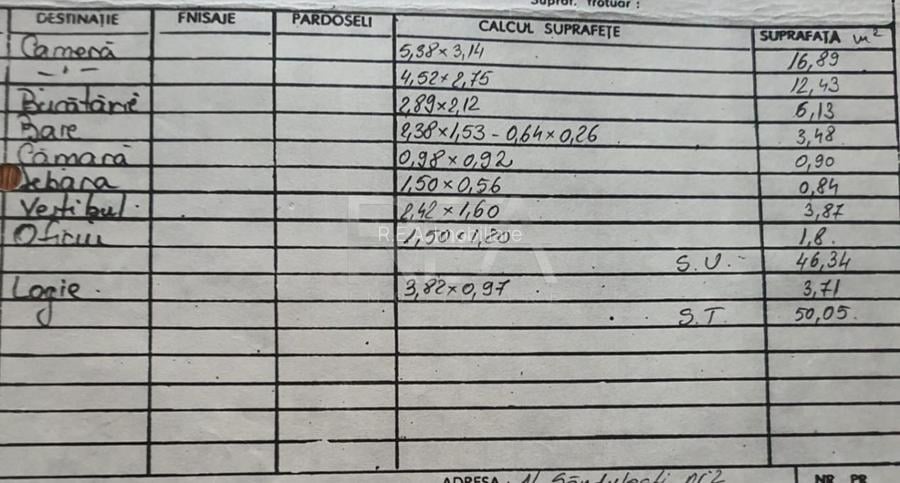 Supraf. Trotuar :
DESTINAȚIE FNISAJE PARDOSELI CALCUL SUPRAFEȚE SUPRAFAȚA m²
Cameră 5,38 × 3,14 16,89
-"- 4,52 × 2,75 12,43
Bucătărie 2,89 × 2,12 6,13
Baie 2,38 × 1,53 - 0,64 × 0,26 3,48
Cămară 0,98 × 0,92 0,90
Debara 1,50 × 0,56 0,84
Vestibul 2,42 × 1,60 3,87
Oficiu 1,50 × 1,80 1,8
S.U. - 46,34
Logie 3,82 × 0,97 3,71
S.T. 50,05
ADRESA : Al. Săndulești nr2 NR PR